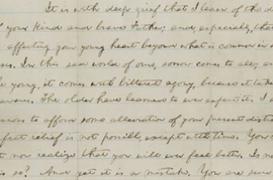 It is with deep grief that I learn of the d
your kind and brave Father; and, especially, that
affecting your young heart beyond what is common in
In this sad world of ours, sorrow comes to all; and,
young, it comes with bitterest agony, because it take
The older have learned to ever expect it. I
to afford some alleviation of your present dist
relief is not possible, except with time. You
now realize that you will ever feel better. Is
so? And yet it is a mistake. You are sure